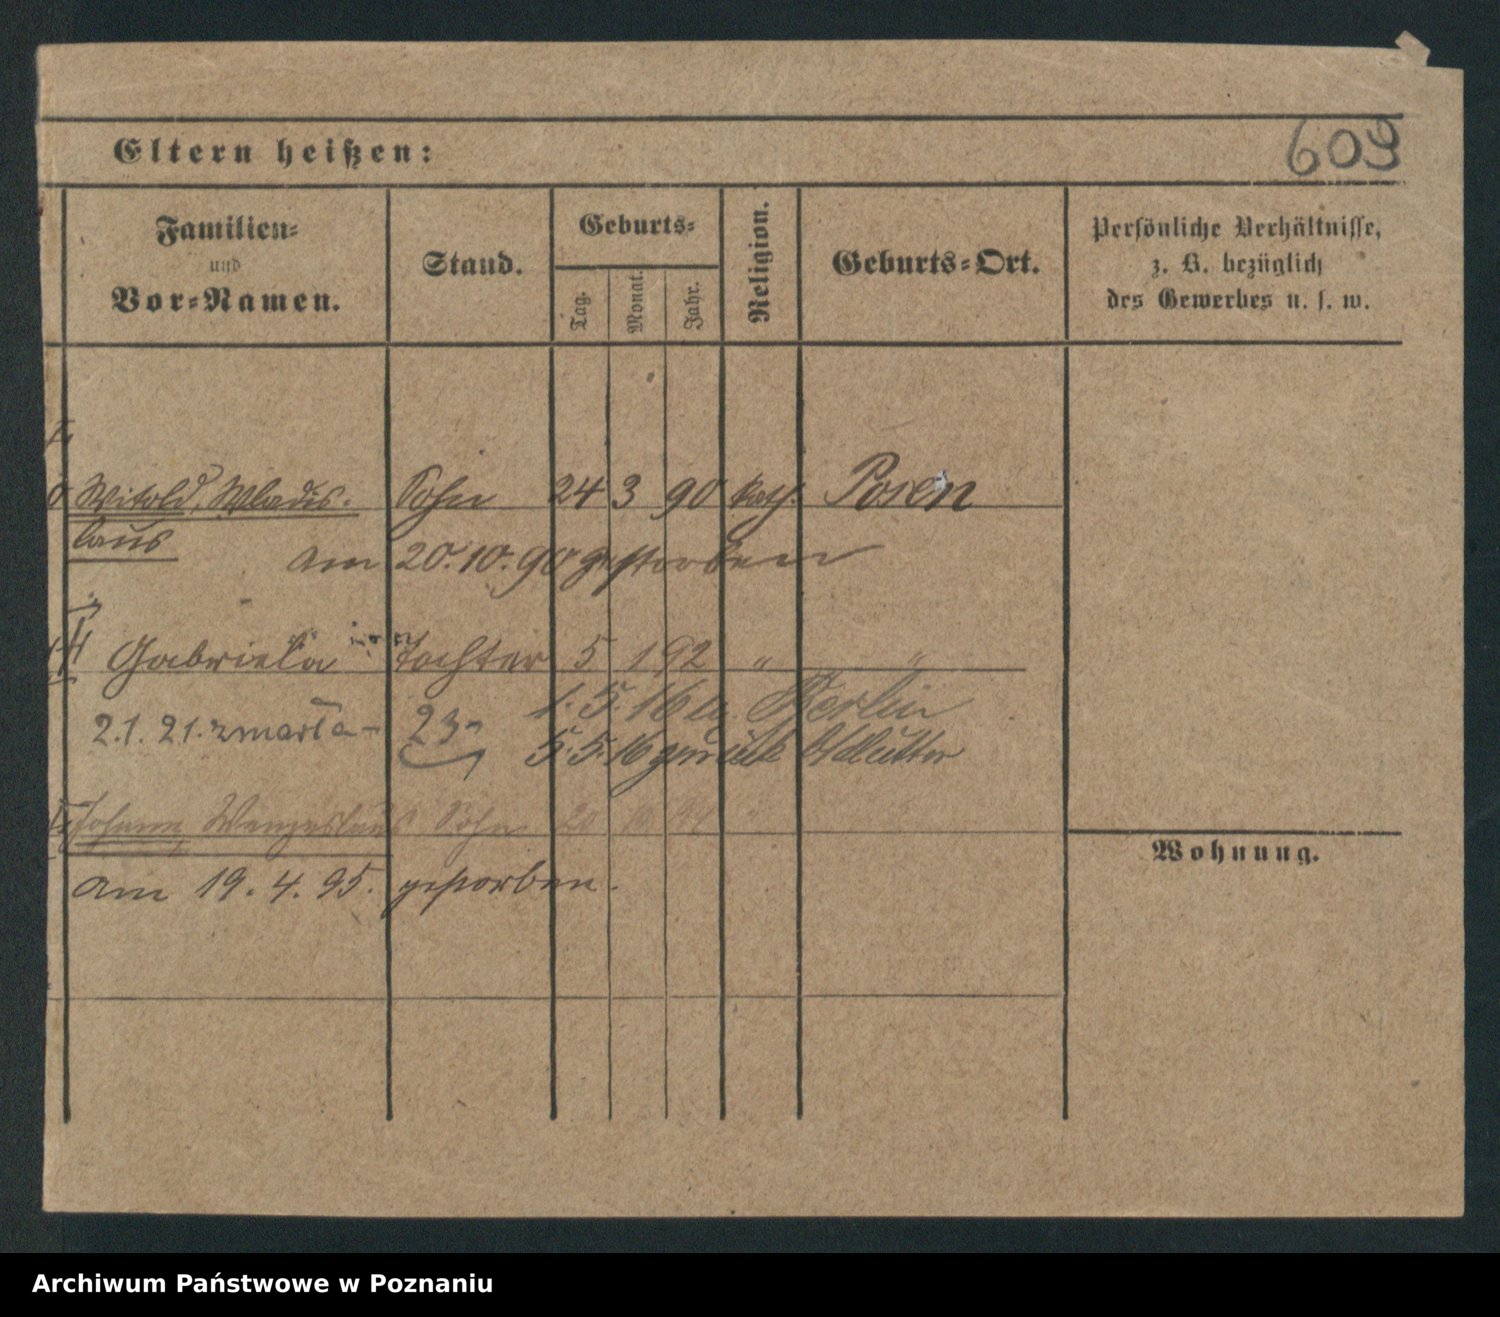 603
Eltern heißen:
Familien=
und
Vor=Namen.
Stand.
Geburts=
Tag.
Monat.
Jahr.
Religion.
Geburts=Ort.
Persönliche Verhältnisse,
z. B. bezüglich
des Gewerbes u. s. w.
Witold, Wladis- Sohn 24 3 90 kath. Posen
laus
am 20.10.90 gestorben
Gabriela Tochter 5 1 92 " "
1.5.16 Berlin
2.1.21. zmarła - 23-
5.5.16 zurück
Johann Wenzeslaus Sohn 20
am 19.4.95. gestorben.
Wohnung.
Archiwum Państwowe w Poznaniu